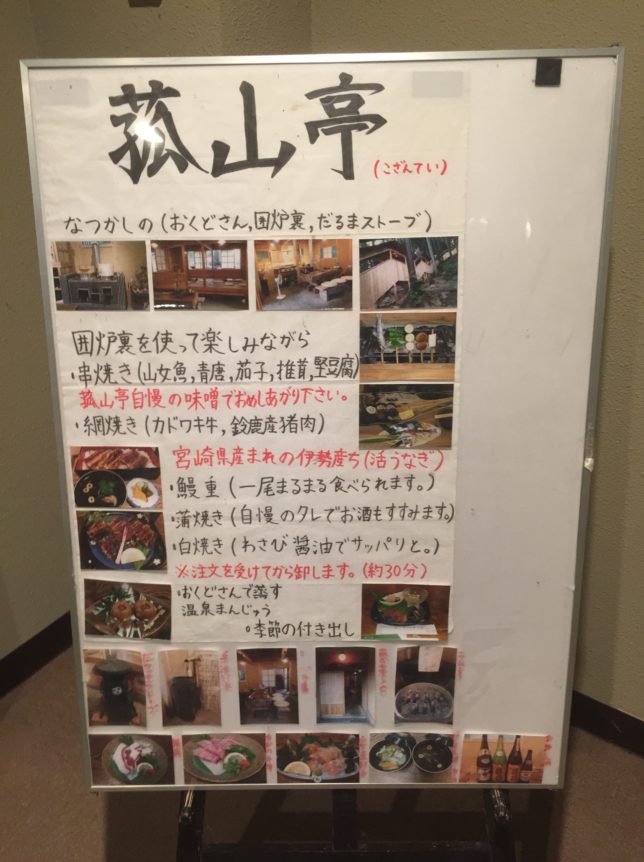 菰山亭
(こざんてい)
なつかしの(おくどさん,囲炉裏,だるまストーブ)
囲炉裏を使って楽しみながら
・串焼き(山女魚,青唐,茄子,椎茸,堅豆腐)
菰山亭自慢の味噌でおめしあがり下さい。
・網焼き(カドワキ牛,鈴鹿産猪肉)
宮崎県産まれの伊勢産ち(活うなぎ)
・鰻重(一尾まるまる食べられます。)
・蒲焼き(自慢のタレでお酒もすすみます。)
・白焼き(わさび醤油でサッパリと。)
※注文を受けてから卸します。(約30分)
・おくどさんで蒸す
温泉まんじゅう
。季節の付き出し